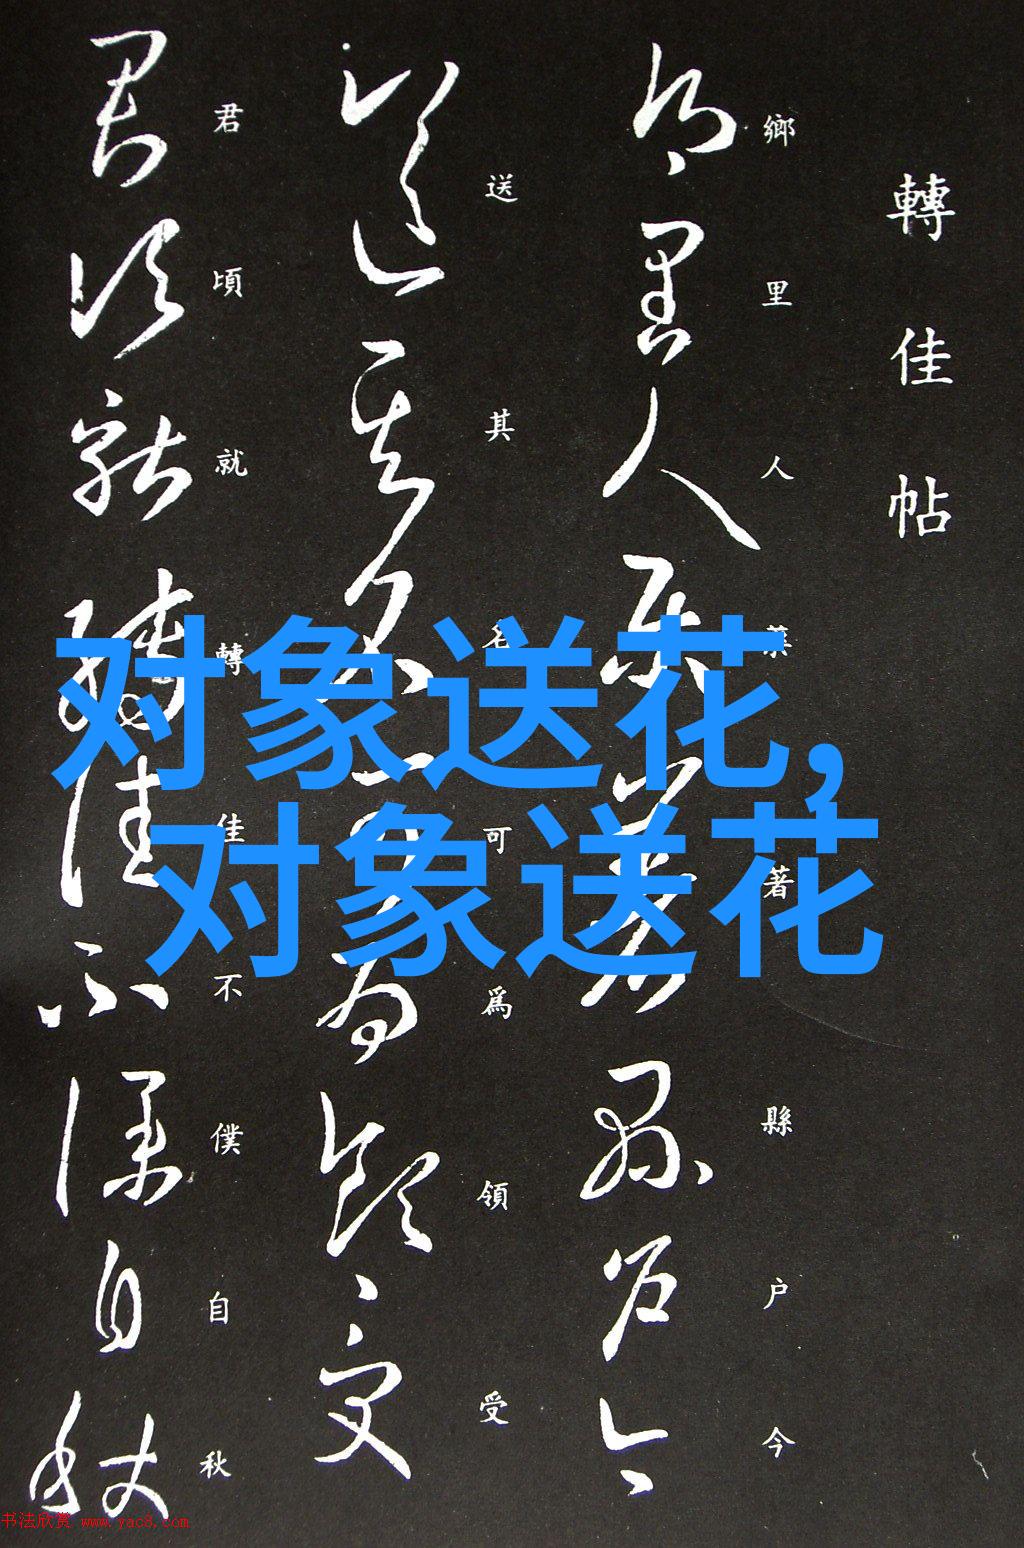 轉佳帖
鄉里人藥著縣户今
送其名可爲領受
君頃就轉佳不僕自秋
对象送花，
对象送花
书法欣赏 www.yac8.com